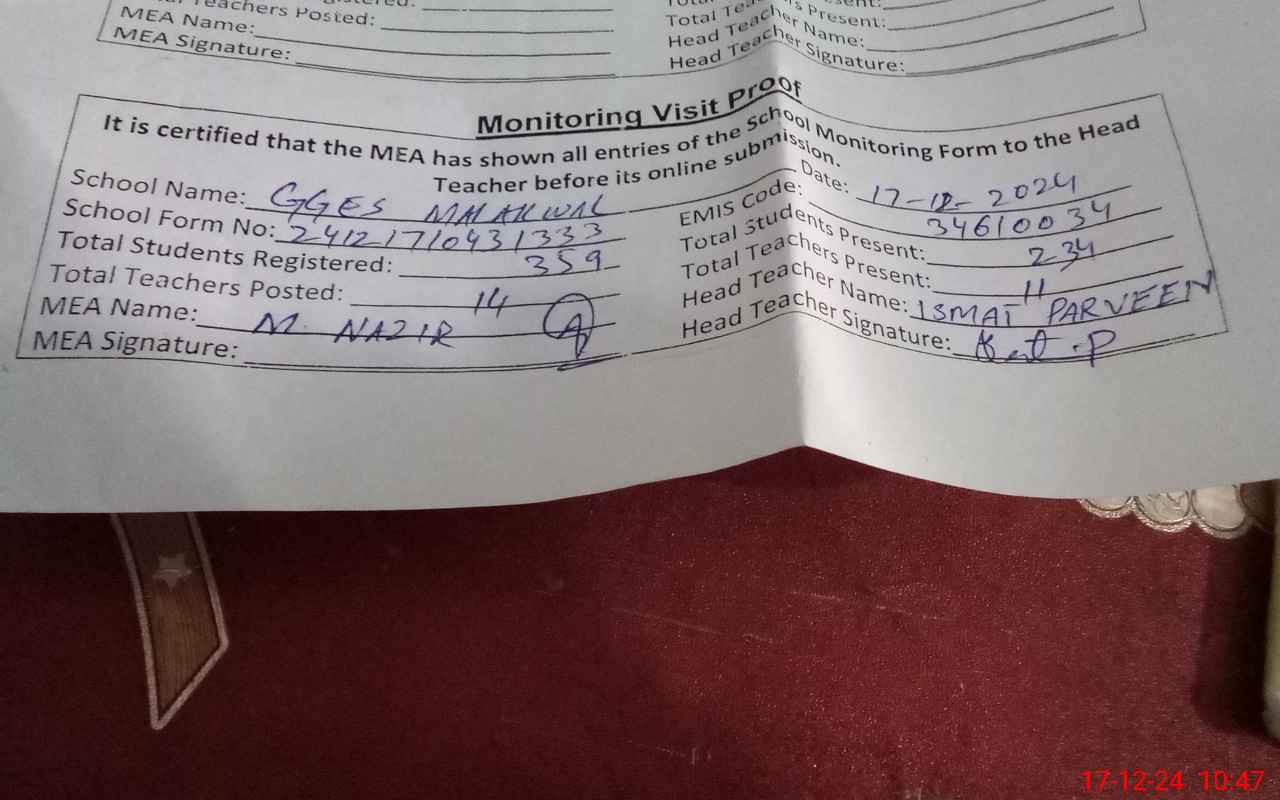 Teachers Posted:
MEA Name:
MEA Signature:
Total
Present:
Head Teacher Name:
Head Teacher Signature:
Monitoring Visit Proof
It is certified that the MEA has shown all entries of the School Monitoring Form to the Head
Teacher before its online submission.
Date: 17-12-2024
School Name: GGES MALAKWAL
EMIS Code: 34610034
School Form No: 24121710431333
Total Students Present: 234
Total Students Registered: 359
Total Teachers Present: 11
Total Teachers Posted: 14
Head Teacher Name: ISMAT PARVEEN
MEA Name: M. NAZIR
Head Teacher Signature:
MEA Signature:
17-12-24 10:47